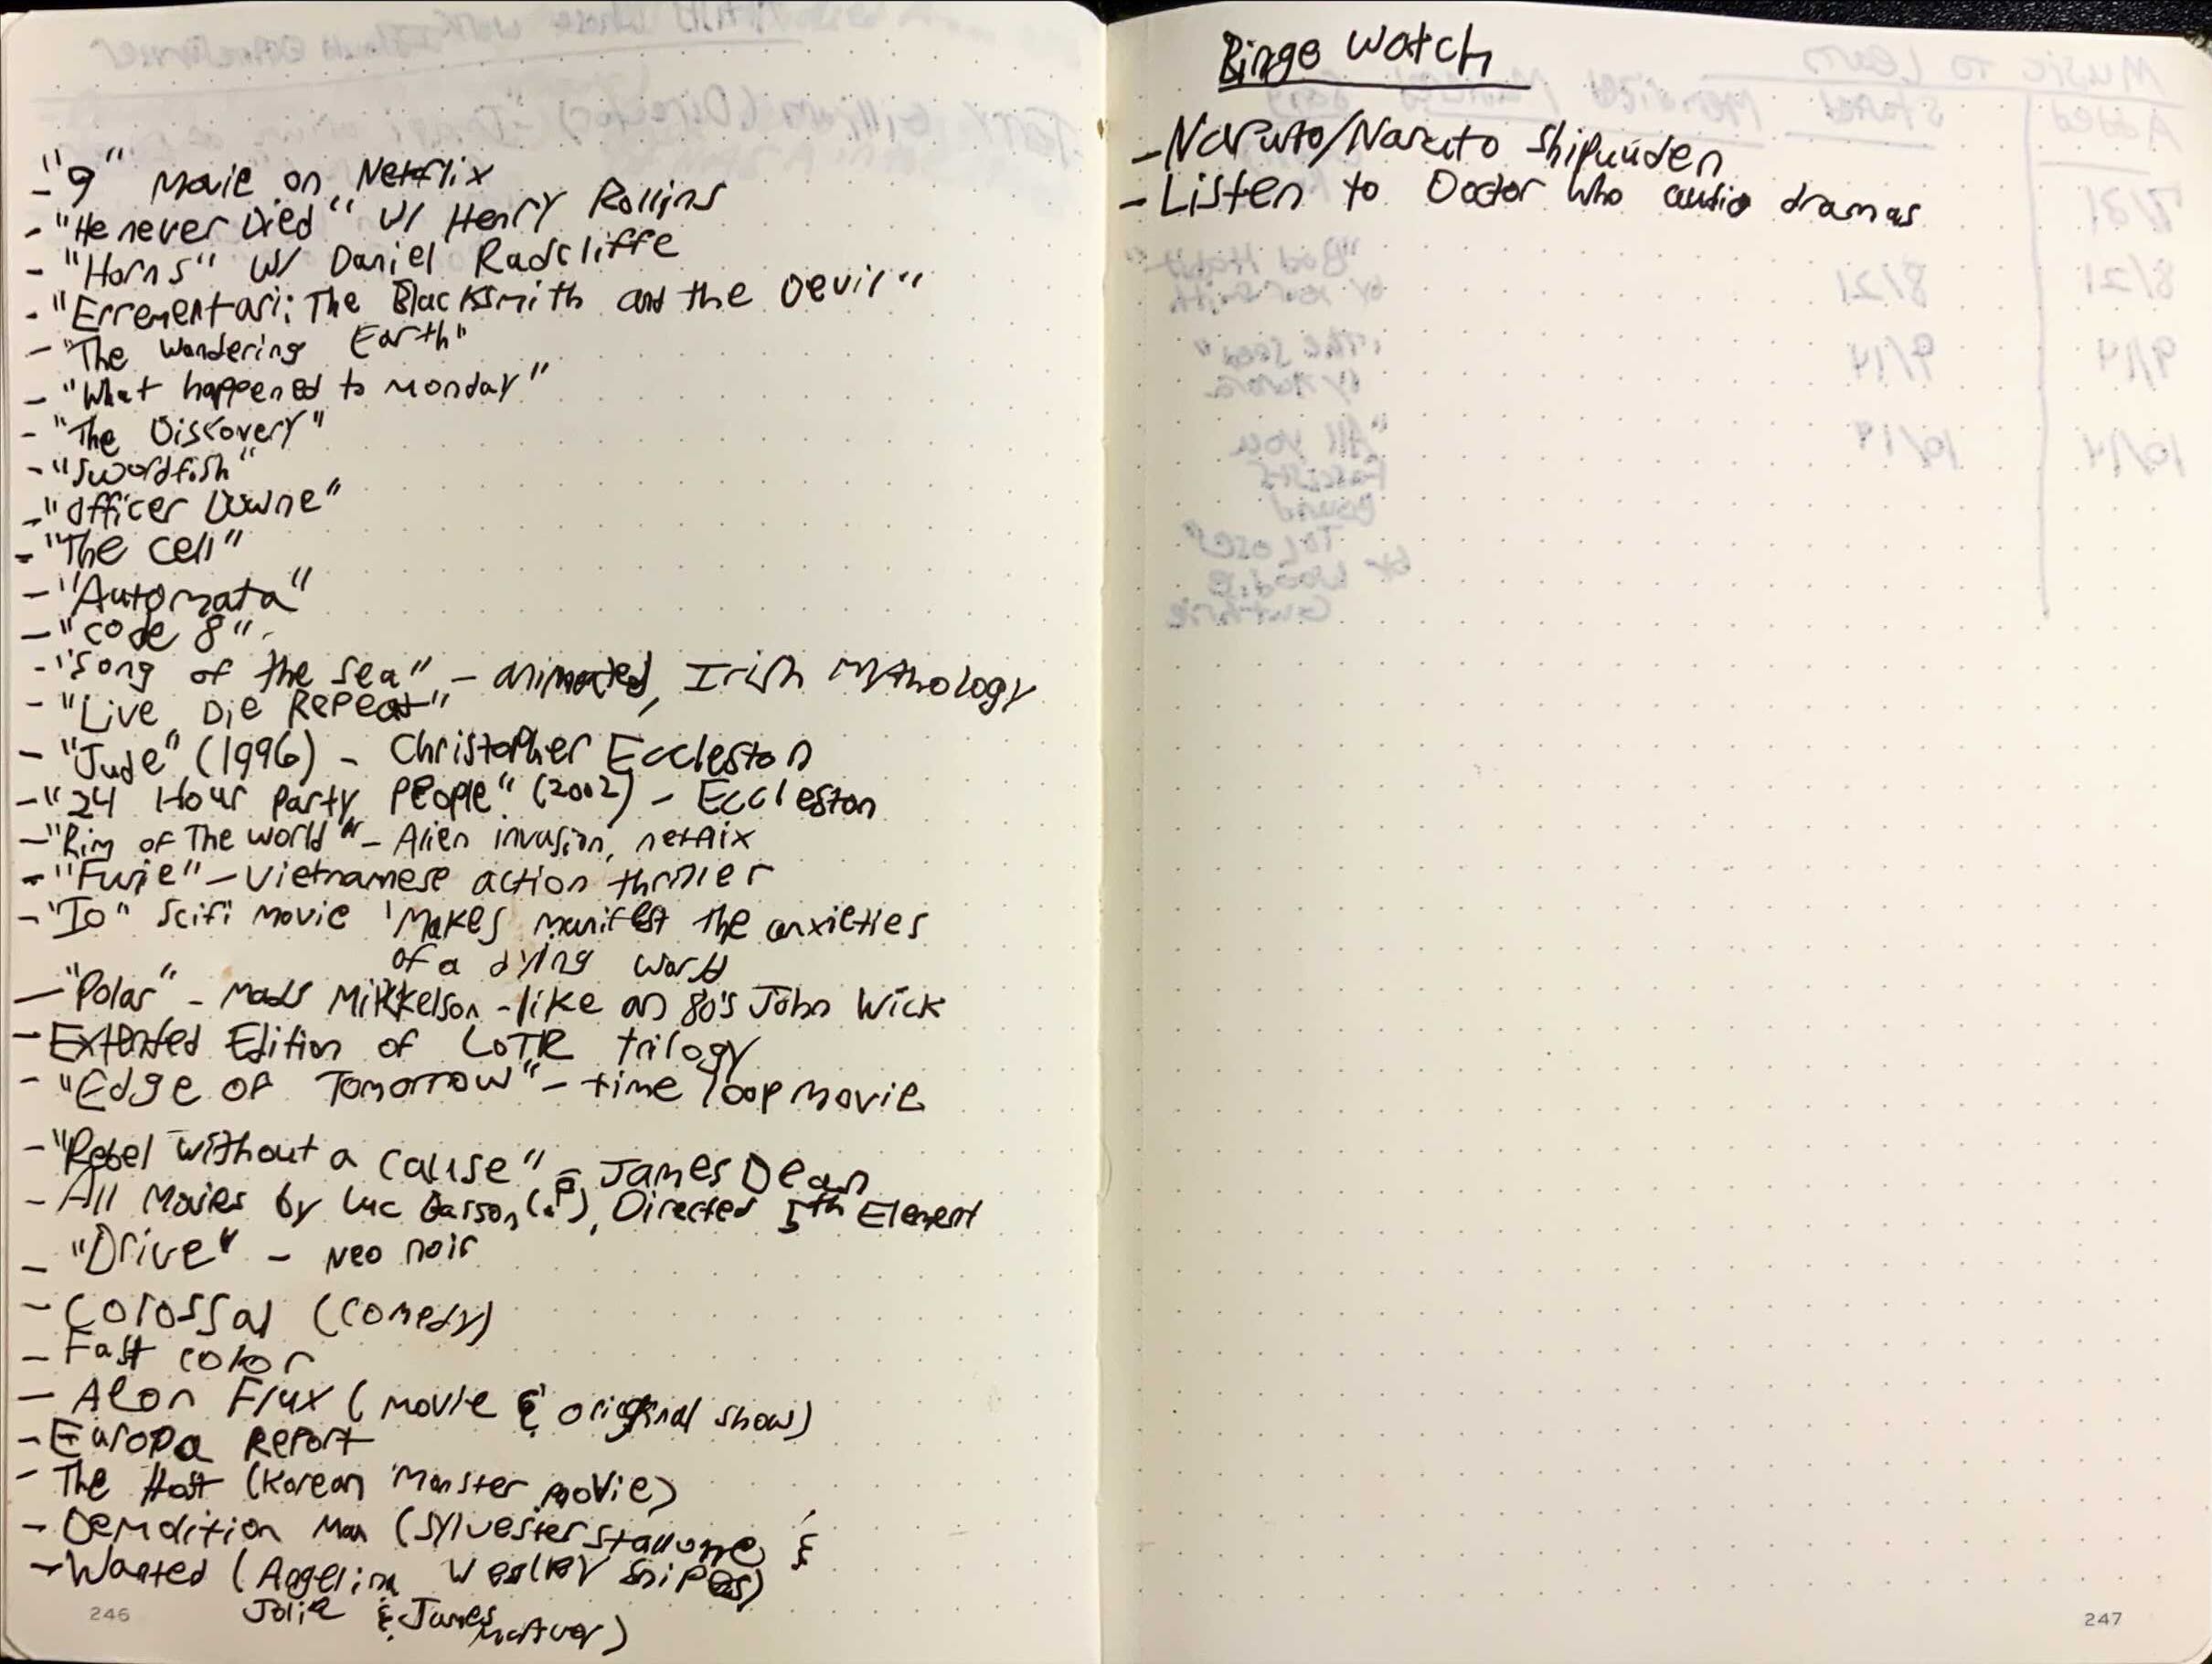 - "9" movie on Netflix
- "He never Died" w/ Henry Rollins
- "Horns" w/ Daniel Radcliffe
- "Errementari: The Blacksmith and the Devil"
- "The Wandering Earth"
- "What happened to Monday"
- "The Discovery"
- "Swordfish"
- "Officer Downe"
- "The Cell"
- "Automata"
- "Code 8"
- "Song of the Sea" - animated, Irish Mythology
- "Live Die Repeat"
- "Jude" (1996) - Christopher Eccleston
- "24 Hour Party People" (2002) - Eccleston
- "Rim of The World" - Alien invasion, netflix
- "Furie" - Vietnamese action thriller
- "Io" Scifi movie 'makes manifest the anxieties
of a dying world
- "Polar" - Mads Mikkelson - like an 80's John Wick
- Extended Edition of LoTR trilogy
- "Edge of Tomorrow" - time loop movie
- "Rebel without a cause" - James Dean
- All Movies by Luc Basson (?), Directed 5th Element
- "Drive" - Neo noir
- Colossal (Comedy)
- Fast color
- Aeon Flux (movie & original show)
- Europa Report
- The Host (Korean Monster movie)
- Demolition Man (Sylvester Stallone &
Wesley Snipes)
- Wanted (Angelina
Jolie & James
McAvoy)
246
Binge Watch
- Naruto/Naruto Shipuuden
- Listen to Doctor Who audio dramas
247